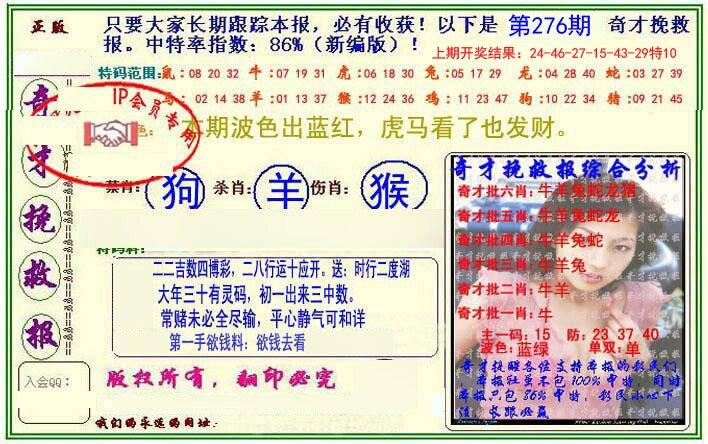 正版
只要大家长期跟踪本报，必有收获！以下是 第276期 奇才挽救
报。中特率指数：86%（新编版）！
上期开奖结果：24-46-27-15-43-29特10
特码范围：鼠：08 20 32 牛：07 19 31 虎：06 18 30 兔：05 17 29 龙：04 28 40 蛇：03 27 39
02 14 38 羊：01 13 37 猴：12 24 36 鸡：11 23 47 狗：10 22 34 猪：09 21 45
IP会员专用
色：本期波色出蓝红，虎马看了也发财。
奇
才
挽
救
报
禁肖：狗 杀肖：羊 伤肖：猴
特码料：
二二吉数四博彩，二八行运十应开。送：时行二度湖
大年三十有灵码，初一出来三中数。
常赌未必全尽输，平心静气可和详
第一手欲钱料：欲钱去看
版权所有，翻印必究
入会QQ：
我们的永远的网址：
奇才挽救报综合分析
奇才批六肖：牛羊兔蛇龙猪
奇才批五肖：牛羊兔蛇龙
奇才批四肖：牛羊兔蛇
奇才批三肖：牛羊兔
奇才批二肖：牛羊
奇才批一肖：牛
主一码：15 防：23 37 40
波色：蓝绿 单双：单
奇才提醒各位支持本报的彩民们
，本报虽不包100%中特，同时
本报只包86%中特，彩民小心下
注，长跟必赢